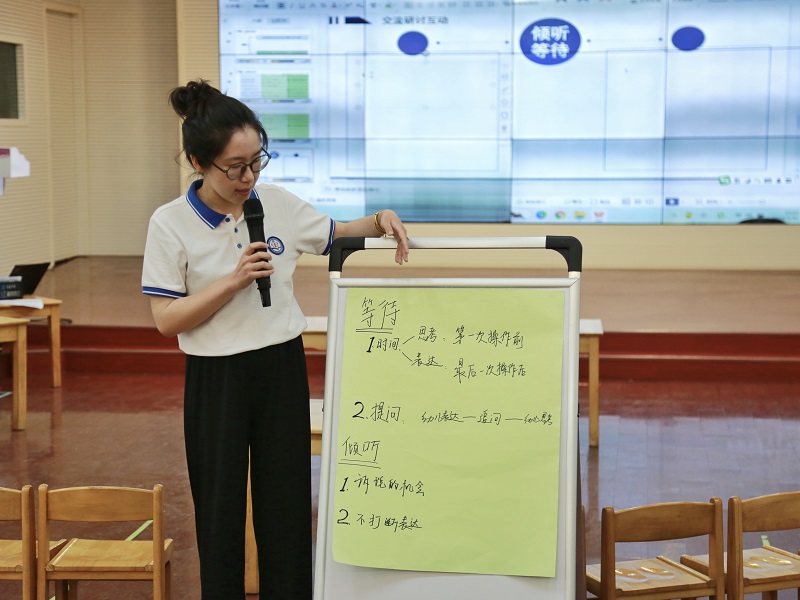 交流研讨互动
倾听
等待
等待
1 时间 思考: 第一次操作前
表达: 最后一次操作后
2. 提问: 幼儿表达—追问—幼儿思考
倾听
1. 诉说的机会
2. 不打断表达